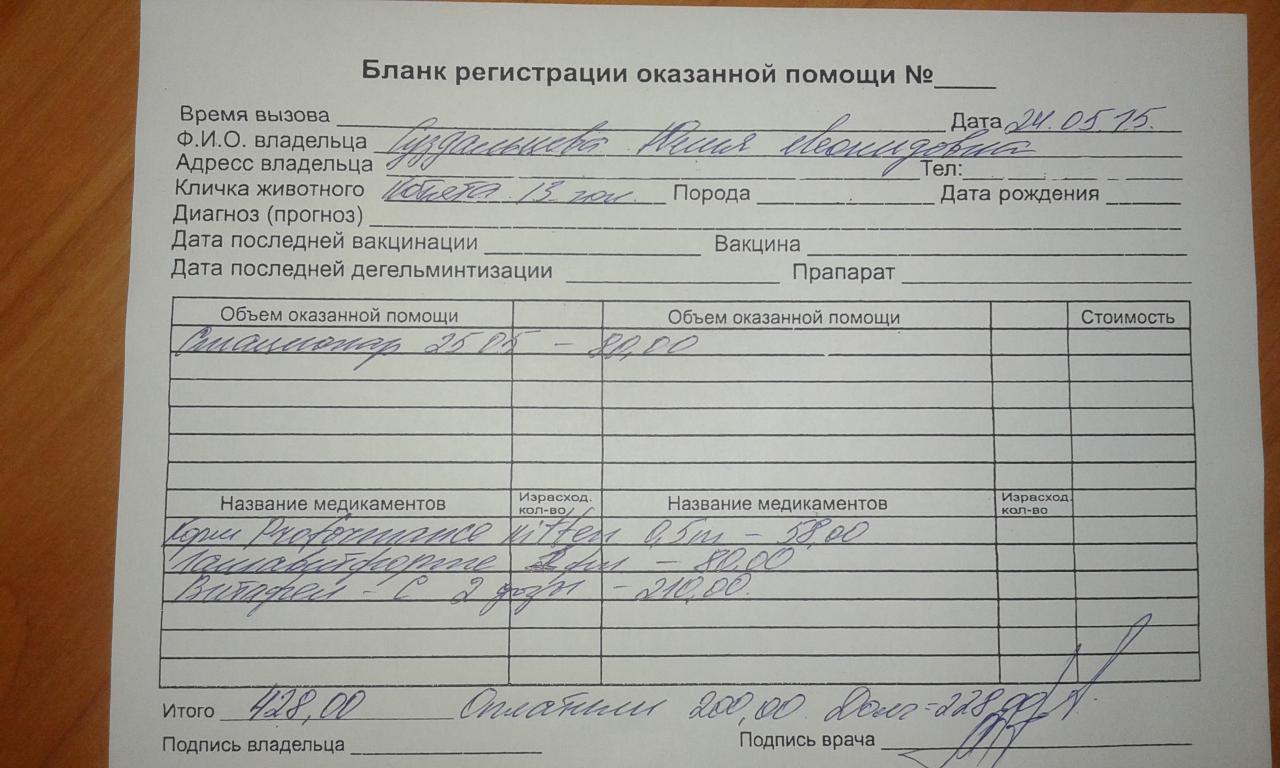 Бланк регистрации оказанной помощи №____
Время вызова Дата 24.05.15.
Ф.И.О. владельца Суздальцева Юлия Леонидовна
Адресс владельца Тел:
Кличка животного Котята 13 гол. Порода Дата рождения
Диагноз (прогноз)
Дата последней вакцинации Вакцина
Дата последней дегельминтизации Прапарат
Объем оказанной помощи Объем оказанной помощи Стоимость
Стационар 25 05 – 80,00
Название медикаментов Израсход. кол-во Название медикаментов Израсход. кол-во
Корм Proformance Kitten 0,5 – 58,00
Гамавитфорте – 80,00
Витафел - С 2 дозы – 210,00.
Итого 428,00 Оплатили 200,00. Долг = 228,00
Подпись владельца Подпись врача